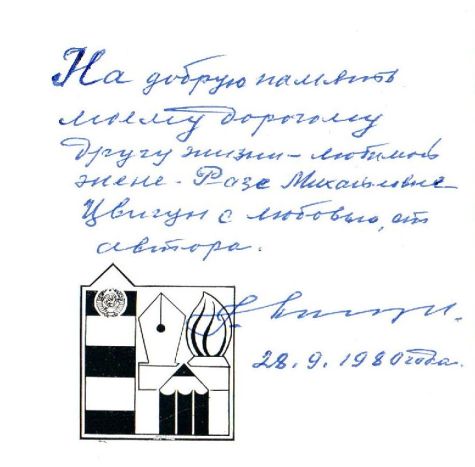 На добрую память
моему дорогому
другу жизни – любимой
жене – Розе Михайловне
Цвигун с любовью, от
автора.
С. Цвигун.
28.9.1980 года.